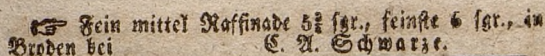 ☞ Fein mittel Raffinade 5¾ sgr., feinste 6 sgr., in
Broden bei C. A. Schwarze.